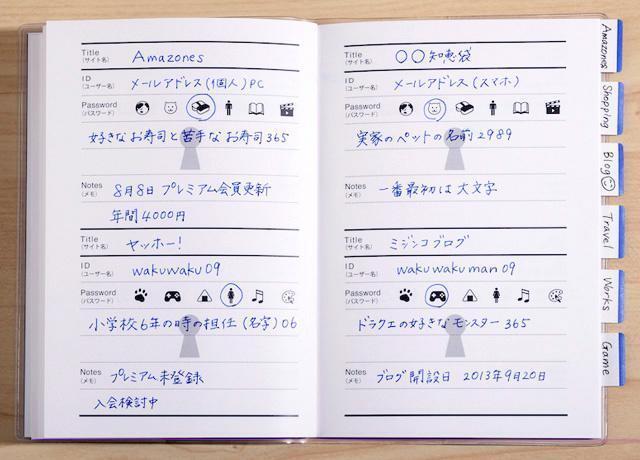 Title
(サイト名)
Amazones
ID
(ユーザー名)
メールアドレス(個人)PC
Password
(パスワード)
好きなお寿司と苦手なお寿司365
Notes
(メモ)
8月8日 プレミアム会員更新
年間4000円
Title
(サイト名)
ヤッホー!
ID
(ユーザー名)
wakuwaku09
Password
(パスワード)
小学校6年の時の担任(名字)06
Notes
(メモ)
プレミアム未登録
入会検討中
Title
(サイト名)
○○知恵袋
ID
(ユーザー名)
メールアドレス(スマホ)
Password
(パスワード)
実家のペットの名前2989
Notes
(メモ)
一番最初は大文字
Title
(サイト名)
ミジンコブログ
ID
(ユーザー名)
wakuwakuman09
Password
(パスワード)
ドラクエの好きなモンスター365
Notes
(メモ)
ブログ開設日 2013年9月20日
Amazones
Shopping
Blog
Travel
Works
Game